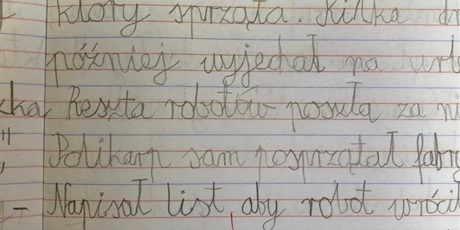 który sprząta. Kilka dn
później wyjechał na urlo
zka Reszta robotów poszła za ni
" Polikarp sam posprzątał fabry
- Napisał list, aby robot wrócił